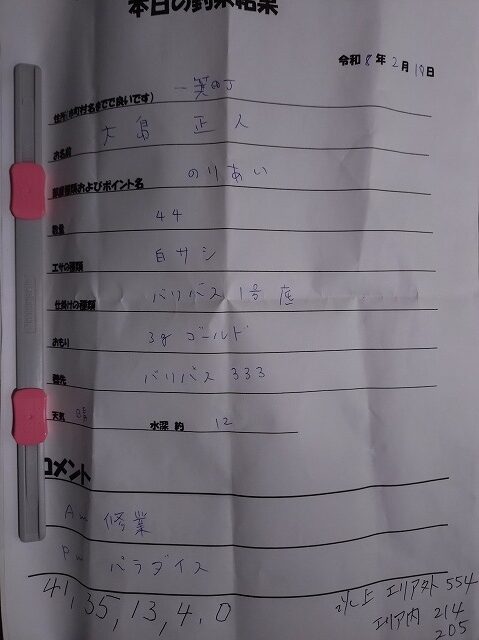 本日の釣果結果
令和 8 年 2 月 19 日
住所(市町村名までで良いです)
お名前 大島 正人
釣座種類およびポイント名 のりあい
数量 44
エサの種類 白サシ
仕掛けの種類 バリバス 1号 底
おもり 3g ゴールド
穂先 バリバス 333
天気 晴 水深 約 12
コメント
Am 修業
Pm パラダイス
41, 35, 13, 4, 0
以上 エリア外 554
エリア内 214
205